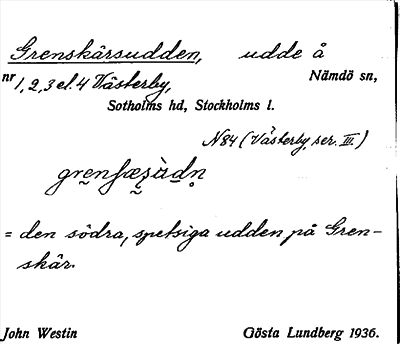 Grenskärsudden, udde å
nr 1, 2, 3 el. 4 Västerby, Nämdö sn,
Sotholms hd, Stockholms l.
N84 (Västerby, ser. III)
= den södra, spetsiga udden på Gren-
skär.
John Westin Gösta Lundberg 1936.